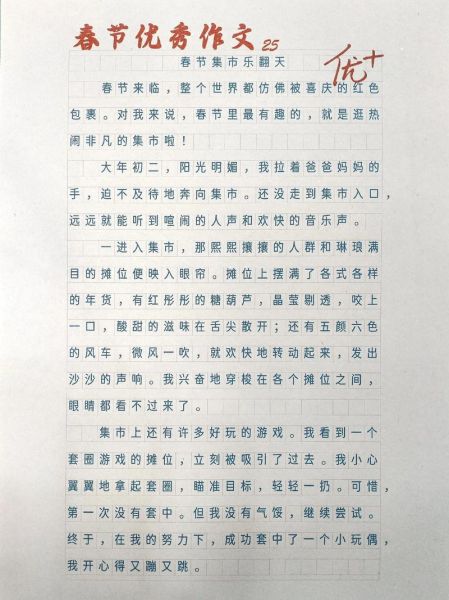 春节优秀作文 25
优+
春节集市乐翻天
春节来临，整个世界都仿佛被喜庆的红色
包裹。对我来说，春节里最有趣的，就是逛热
闹非凡的集市啦！
大年初二，阳光明媚，我拉着爸爸妈妈的
手，迫不及待地奔向集市。还没走到集市入口，
远远就能听到喧闹的人声和欢快的音乐声。
一进入集市，那熙熙攘攘的人群和琳琅满
目的摊位便映入眼帘。摊位上摆满了各式各样
的年货，有红彤彤的糖葫芦，晶莹剔透，咬上
一口，酸甜的滋味在舌尖散开；还有五颜六色
的风车，微风一吹，就欢快地转动起来，发出
沙沙的声响。我兴奋地穿梭在各个摊位之间，
眼睛都看不过来了。
集市上还有许多好玩的游戏。我看到一个
套圈游戏的摊位，立刻被吸引了过去。我小心
翼翼地拿起套圈，瞄准目标，轻轻一扔。可惜，
第一次没有套中。但我没有气馁，继续尝试。
终于，在我的努力下，成功套中了一个小玩偶，
我开心得又蹦又跳。